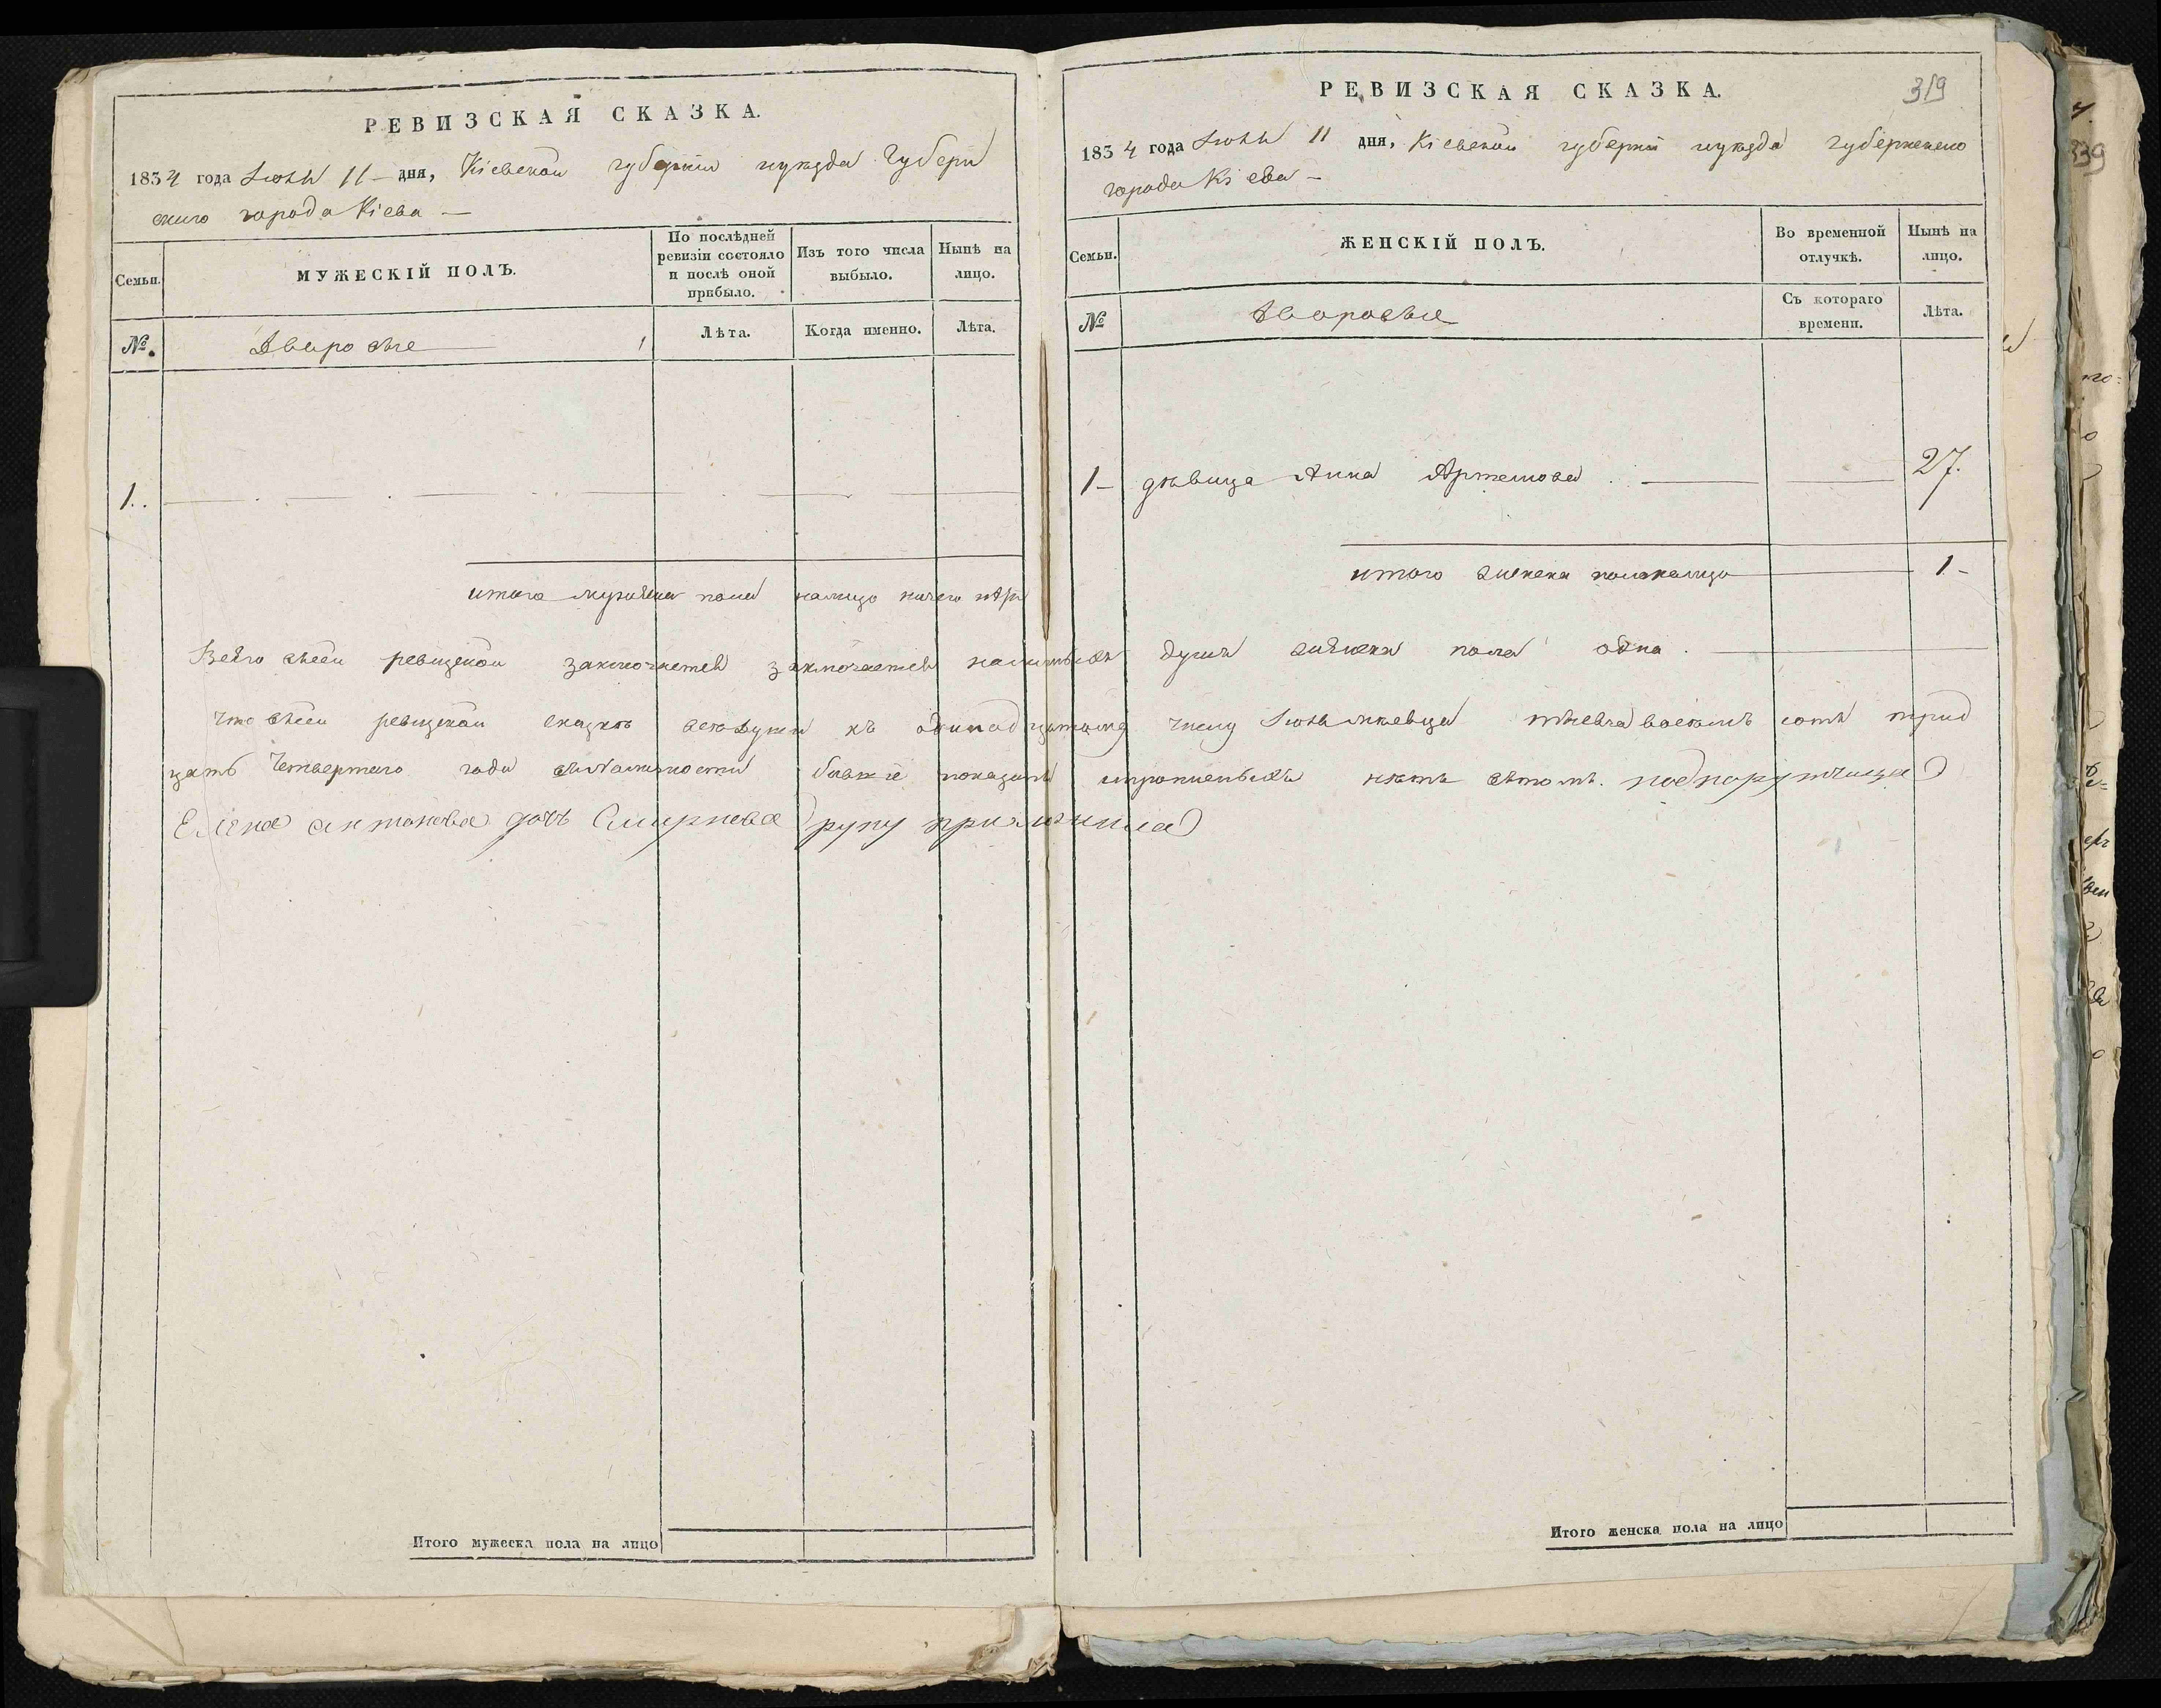 РЕВИЗСКАЯ СКАЗКА.
1834 года Июня 11 - дня, Кіевской губерніи иуезда Губерн
скаго города Кіева —
Семьи.
МУЖЕСКІЙ ПОЛЪ.
По послѣдней ревизіи состояло и послѣ оной прибыло.
Изъ того числа выбыло.
Нынѣ на лицо.
№.
Дворовые
Лѣта.
Когда именно.
Лѣта.
1.
итого мужеска пола налицо ничего нѣт
Итого мужеска пола на лицо
319
РЕВИЗСКАЯ СКАЗКА.
1834 года Июня 11 дня, Кіевской губерніи иуезда губернскаго
города Кіева —
Семьи.
ЖЕНСКІЙ ПОЛЪ.
Во временной отлучкѣ.
Нынѣ на лицо.
№
Дворовые
Съ котораго времени.
Лѣта.
1 - дѣвица Анна Артемова 27.
итого женска пола налицо 1 -
Всего всеи ревизской заключается заключается наличныхъ душъ женска пола одна.
Что всеи ревизкой сказкѣ все души къ одинадцатому числу Июня мѣсяца тысяча восемь сотъ трид
цать Четвертаго года показаны нѣтъ вѣтомъ. подпорутчица
Елена антонова дочь Смирнова руку приложила
Итого женска пола на лицо
339